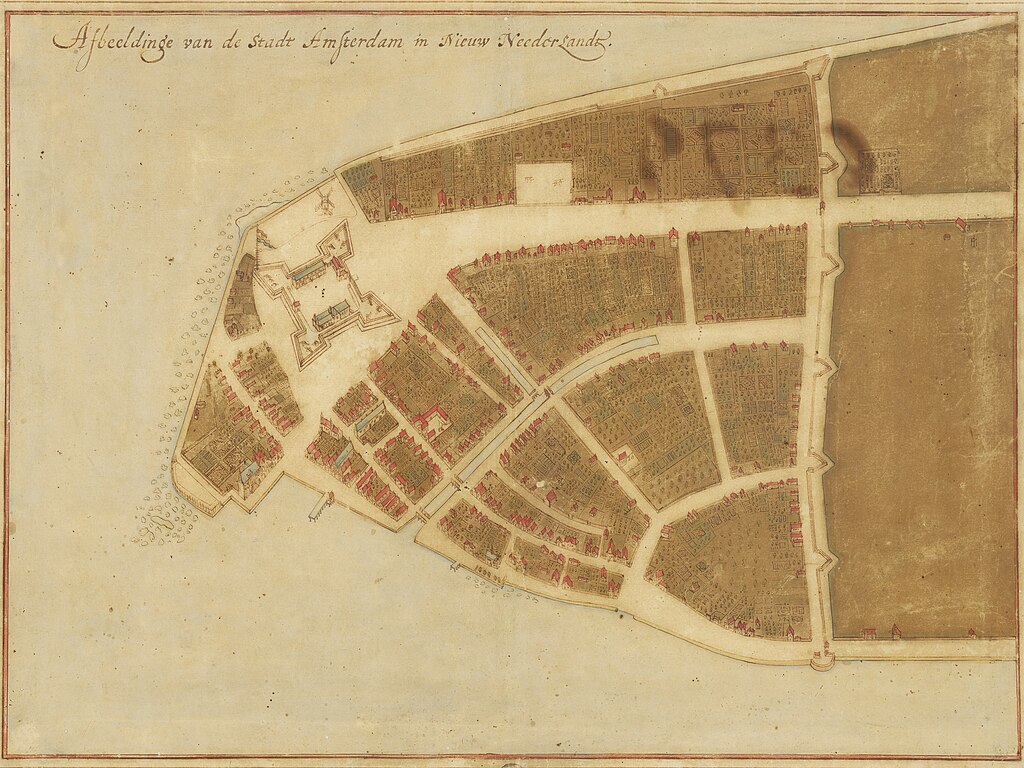 Afbeeldinge van de Stadt Amsterdam in Nieuw Neederlandt.